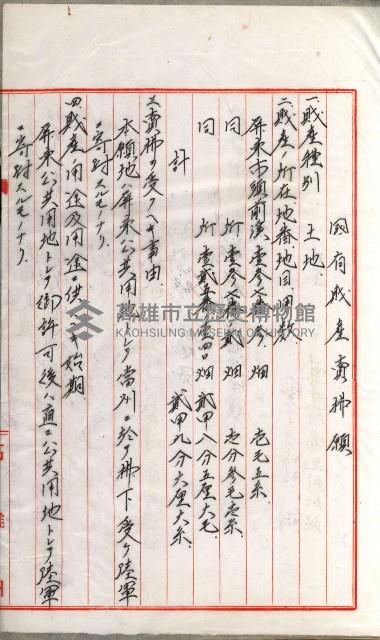 國有財產賣拂願
一、財產種別　土地
二、財產ノ所在地番地目甲數
屏東市頭前溪　畑　壱毛五糸
同　所　畑　壱分参毛壱糸
同　所　畑　貳甲八分五厘六毛
計　貳甲九分六厘六糸
三、賣拂ヲ受クヘキ事由
本願地ハ屏東公共用地トシテ當州ニ於テ拂下受ケ陸軍
ニ寄附スルモノナリ
四、財產ノ用途及用途ニ供スヘキ始期
屏東公共用地トシテ御許可後ハ直ニ公共用地トシテ陸軍
ニ寄附スルモノナリ
高雄州
高雄市立歷史博物館
KAOHSIUNG MUSEUM OF HISTORY